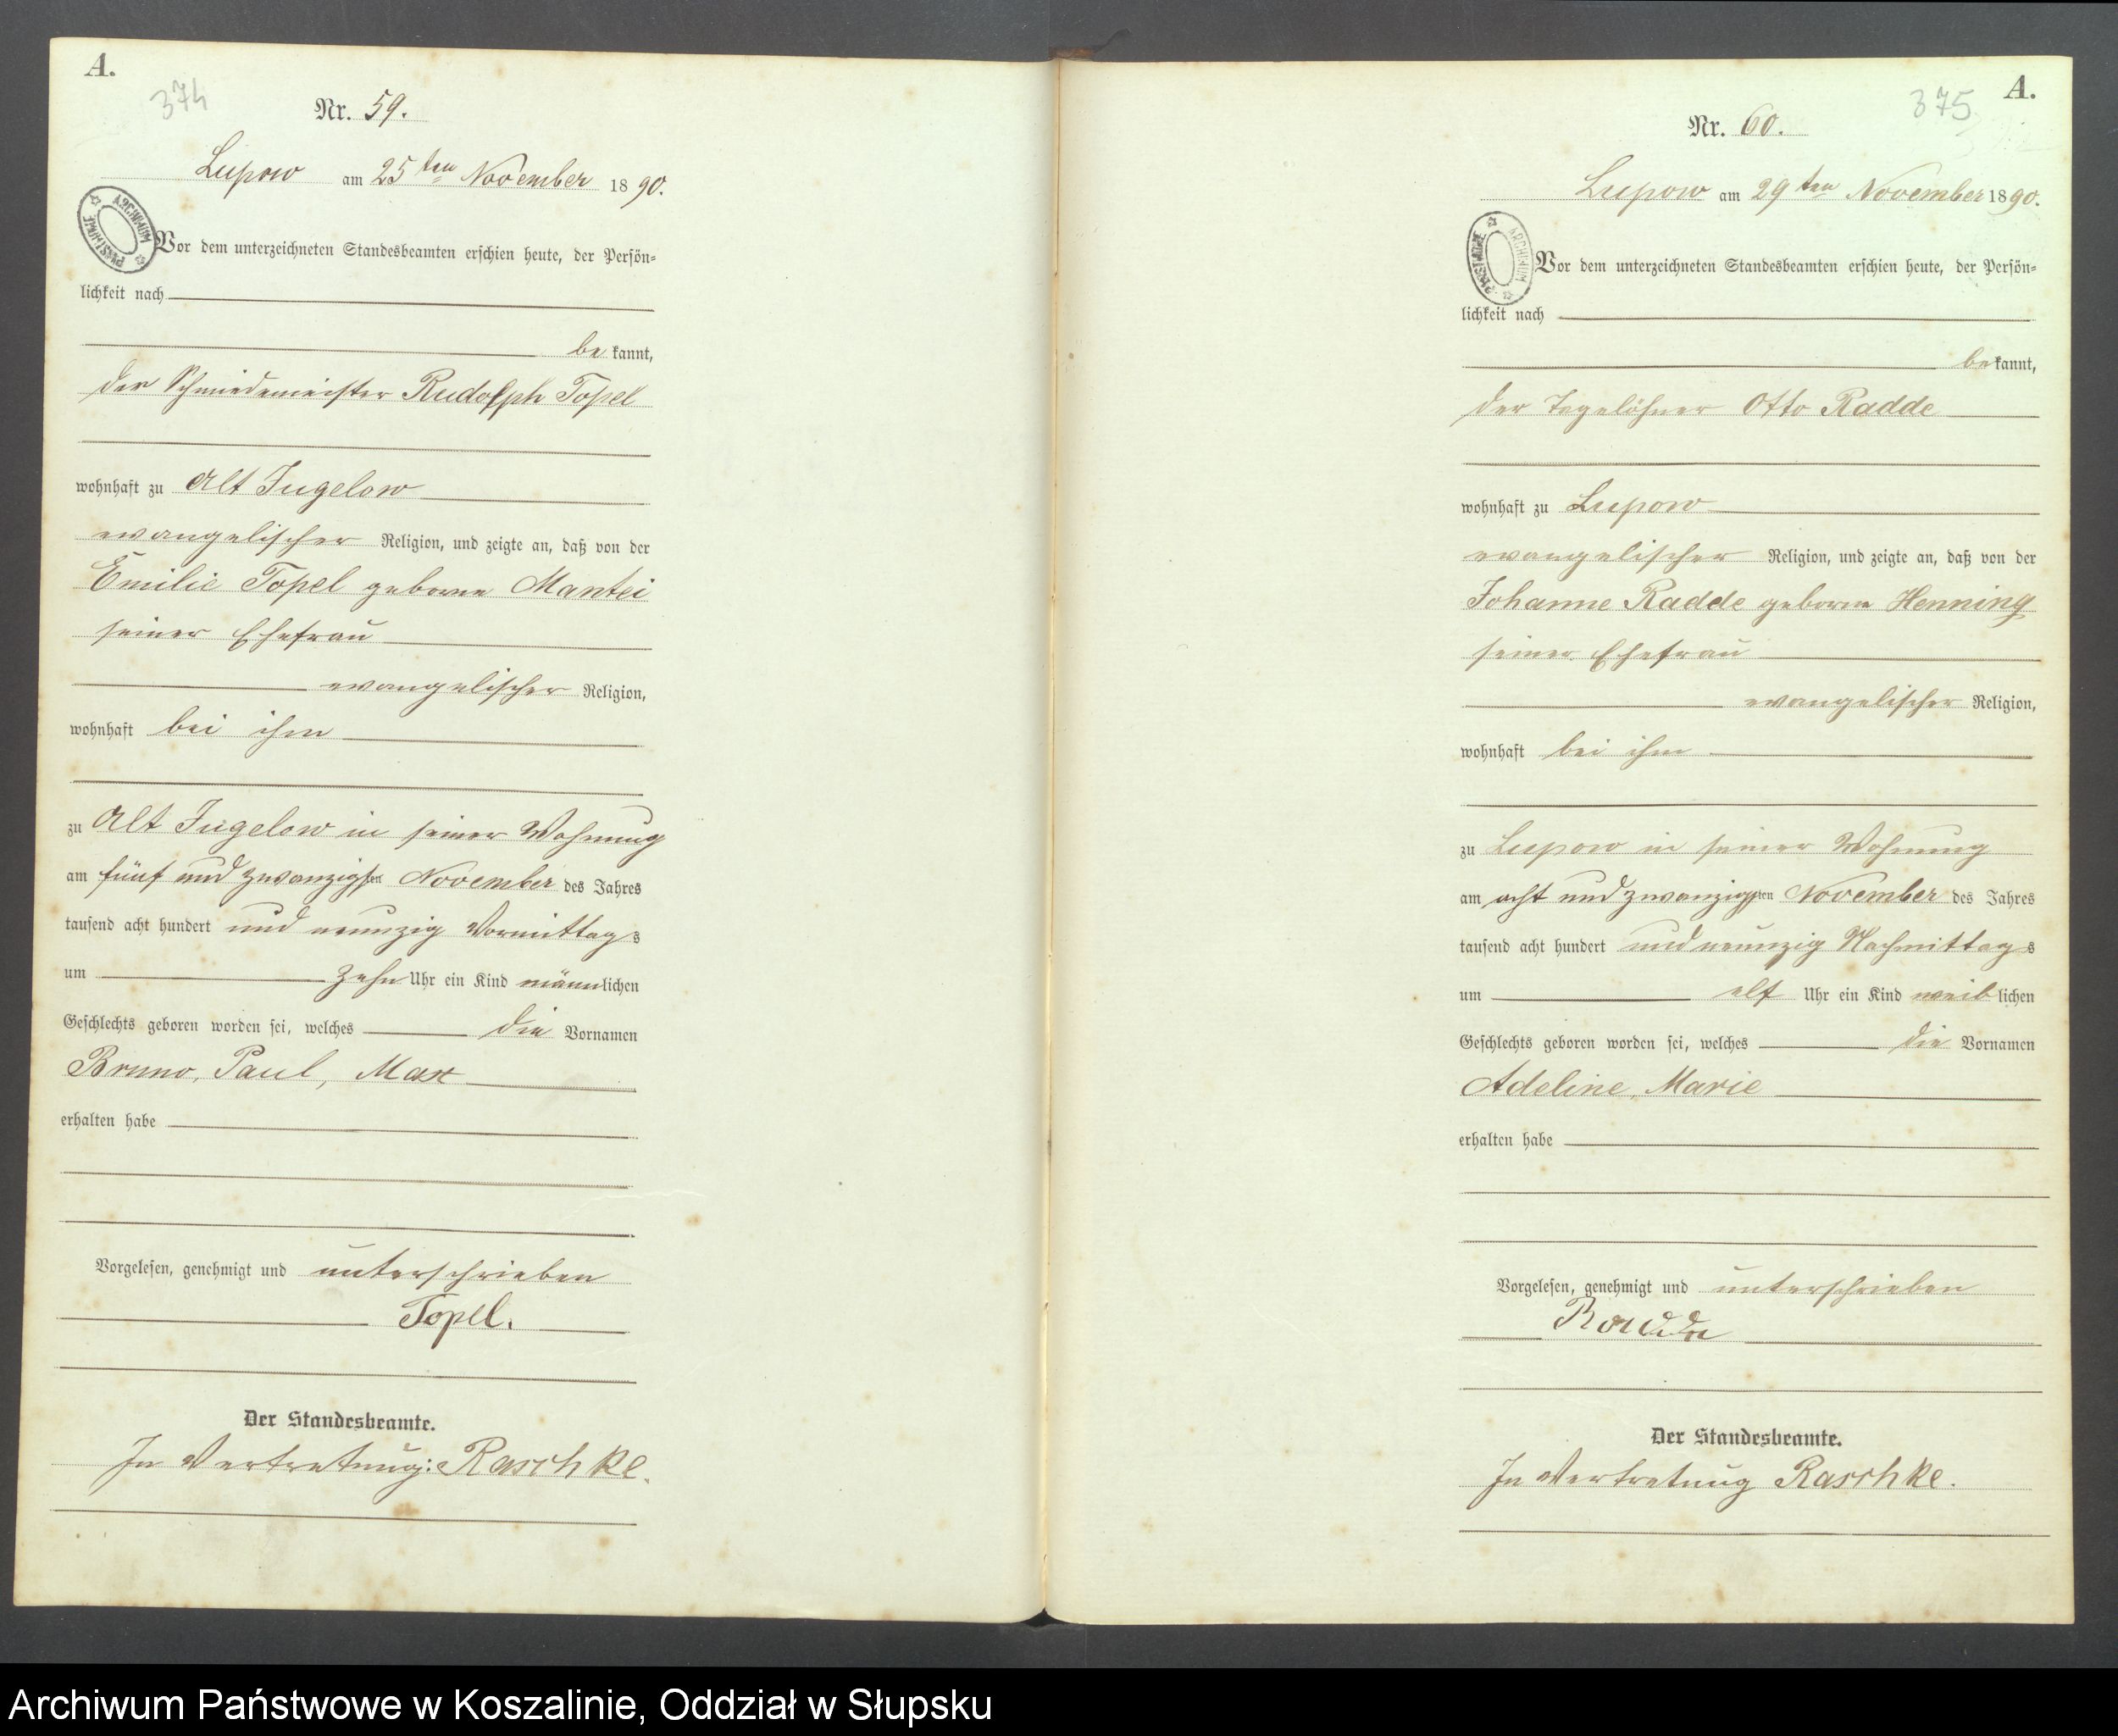 A.
374
Nr. 59.
Lupow am 25ten November 1890.
ARCHIWUM PAŃSTWOWE
Vor dem unterzeichneten Standesbeamten erschien heute, der Persön-
lichkeit nach
bekannt,
der Schmiedemeister Rudolph Topel
wohnhaft zu Alt Jugelow
evangelischer Religion, und zeigte an, daß von der
Emilie Topel geborne Mantei
seiner Ehefrau
evangelischer Religion,
wohnhaft bei ihm
zu Alt Jugelow in seiner Wohnung
am fünf und zwanzigsten November des Jahres
tausend acht hundert und neunzig Vormittags
um zehn Uhr ein Kind männlichen
Geschlechts geboren worden sei, welches die Vornamen
Bruno, Paul, Max
erhalten habe
Vorgelesen, genehmigt und unterschrieben
Topel.
Der Standesbeamte.
In Vertretung: Raschke.
A.
375
Nr. 60.
Lupow am 29ten November 1890.
ARCHIWUM PAŃSTWOWE
Vor dem unterzeichneten Standesbeamten erschien heute, der Persön-
lichkeit nach
bekannt,
der Tagelöhner Otto Radde
wohnhaft zu Lupow
evangelischer Religion, und zeigte an, daß von der
Johanne Radde geborne Henning
seiner Ehefrau
evangelischer Religion,
wohnhaft bei ihm
zu Lupow in seiner Wohnung
am acht und zwanzigsten November des Jahres
tausend acht hundert und neunzig Nachmittags
um elf Uhr ein Kind weiblichen
Geschlechts geboren worden sei, welches die Vornamen
Adeline, Marie
erhalten habe
Vorgelesen, genehmigt und unterschrieben
Radde
Der Standesbeamte.
In Vertretung Raschke.
Archiwum Państwowe w Koszalinie, Oddział w Słupsku